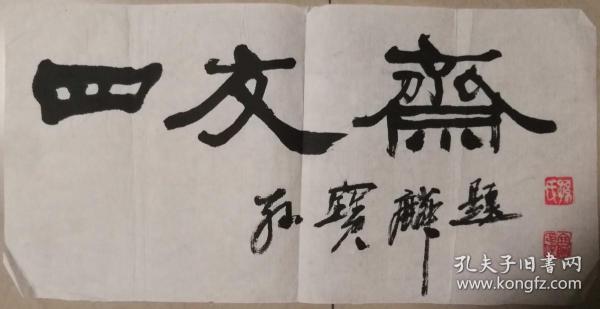 四友齋
孫寶麟題
孔夫子旧书网
www.kongfz.com